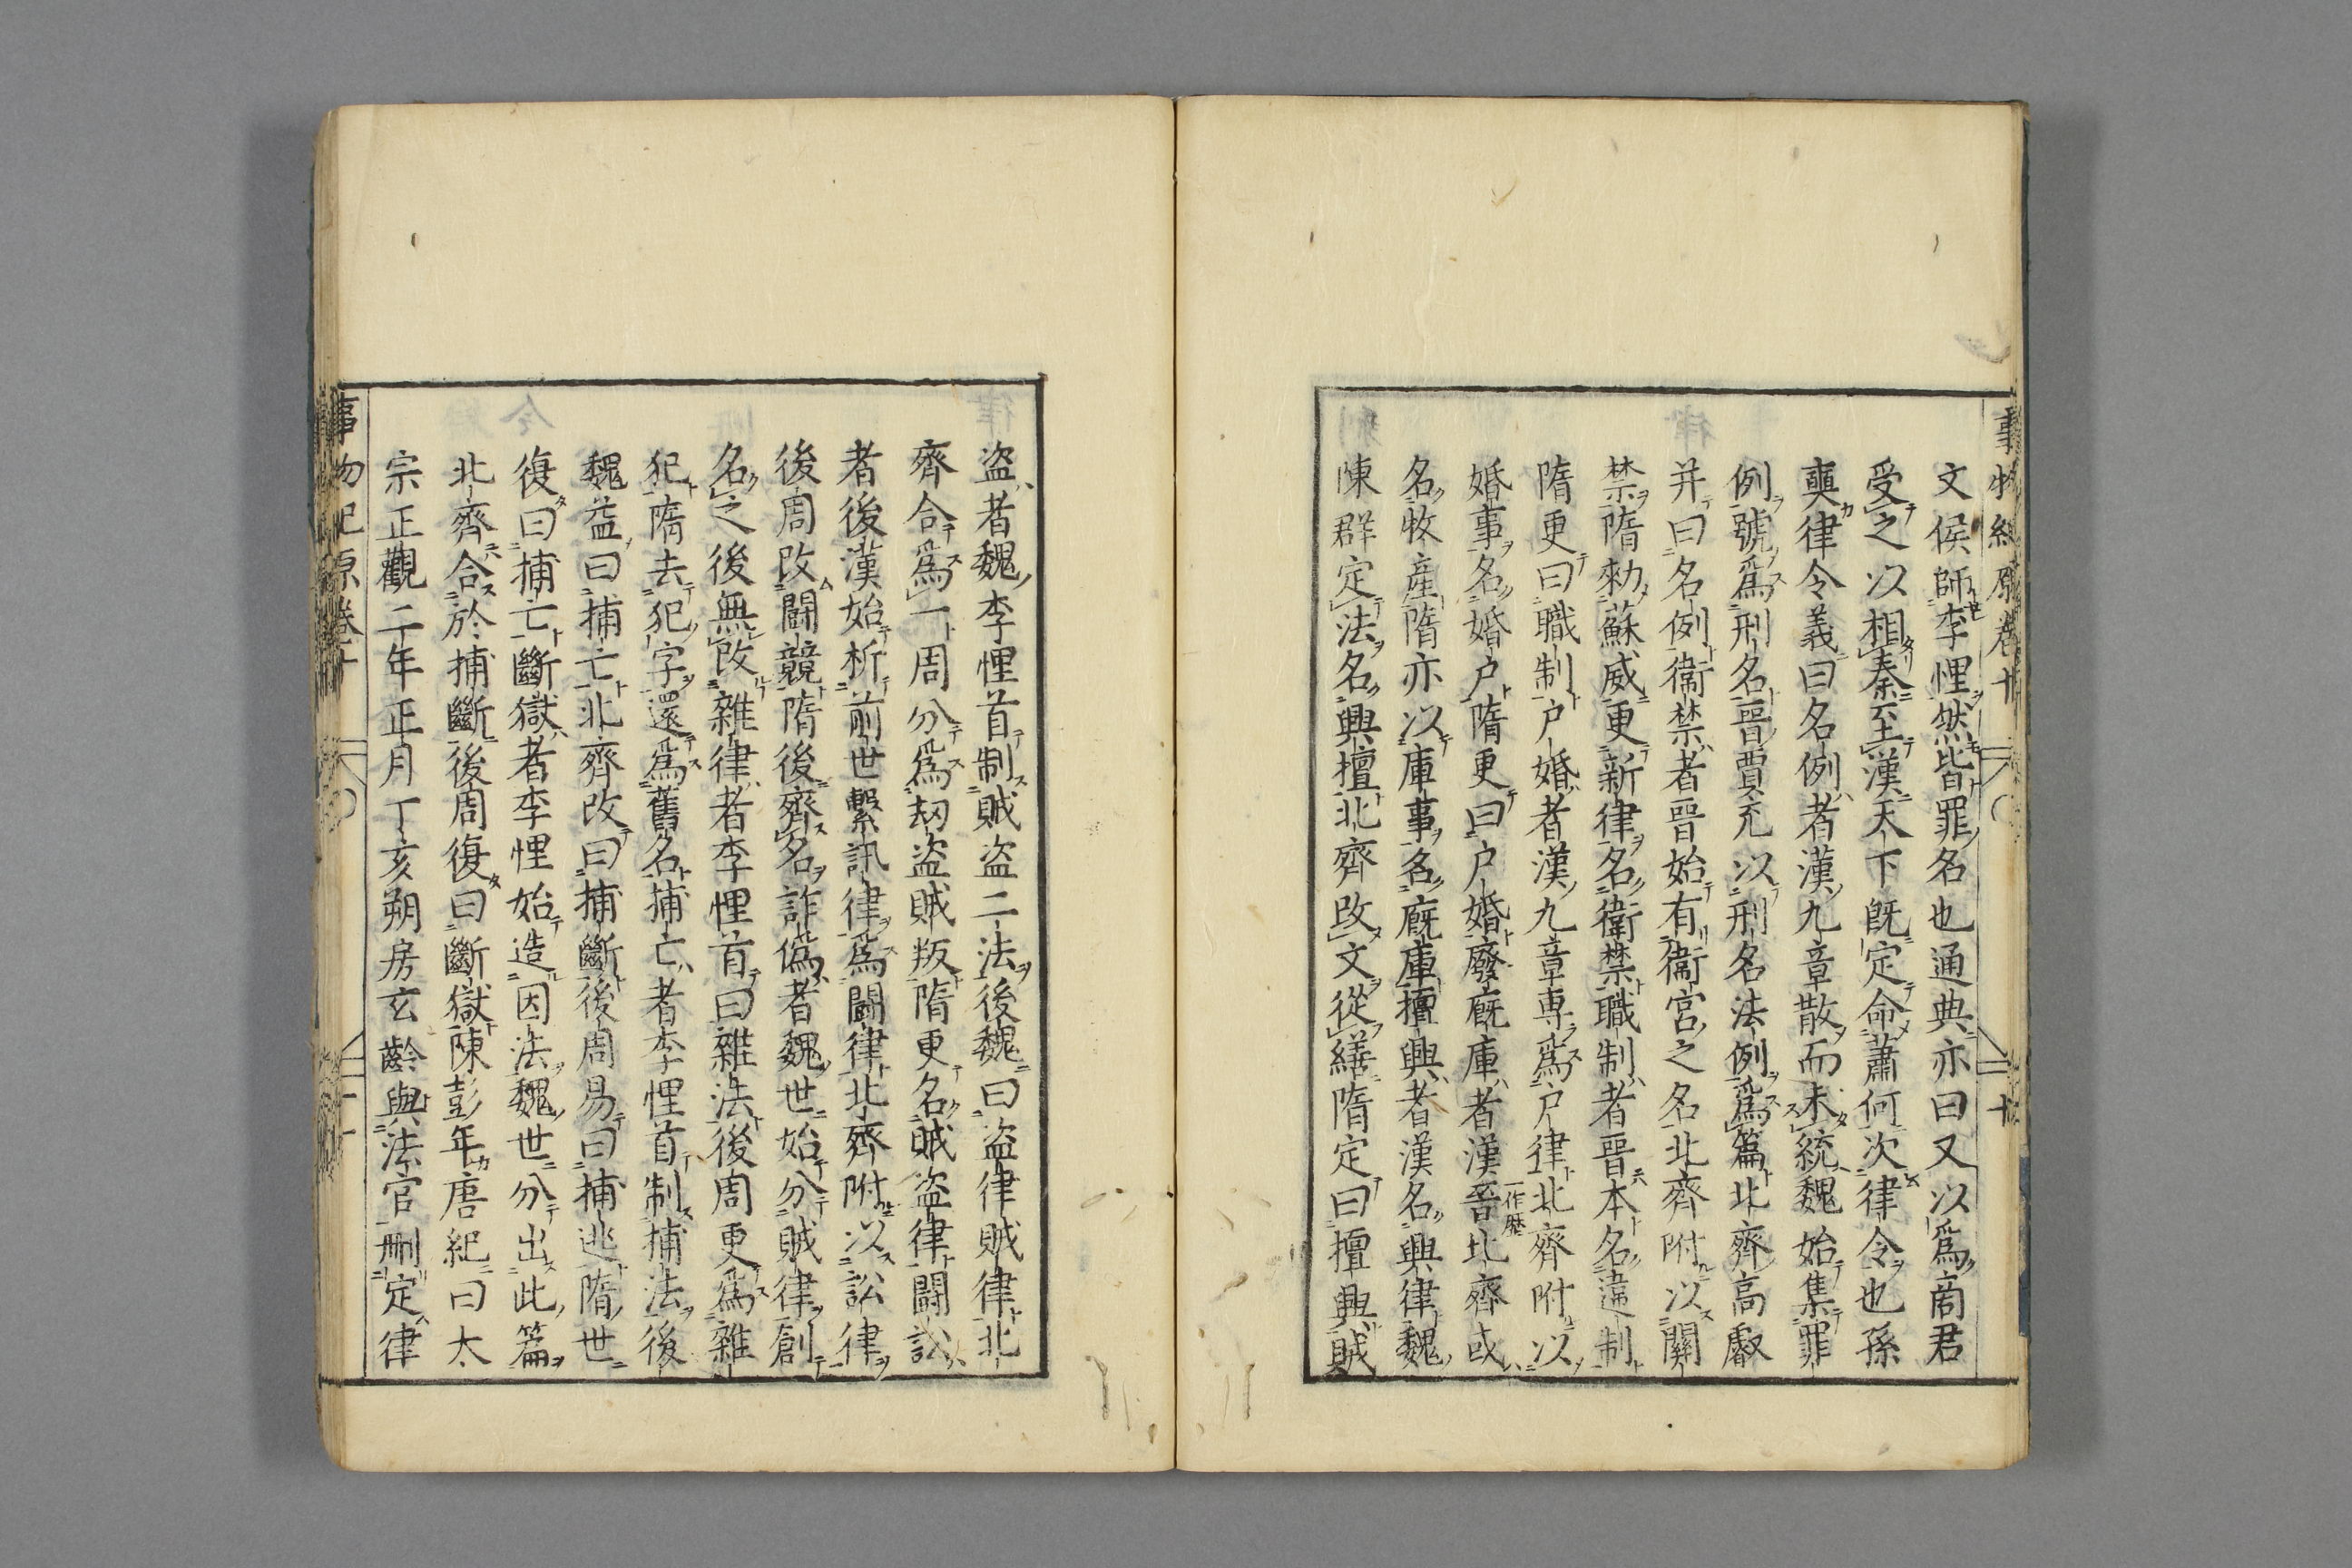 事物紀原卷十
文侯師李悝然皆罪名也通典亦曰又以爲商君
受之以相秦至漢天下既定命蕭何次律令也孫
奭律令義曰名例者漢九章散而未統魏始集罪
例號爲刑名晉賈充以刑名法例爲篇北齊高叡
并曰名例衞禁者晉始有衞宮之名北齊附以關
禁隋勑蘇威更新律名衞禁職制者晉本名違制
隋更曰職制户婚者漢九章專爲户律北齊附以
婚事名婚户隋更曰户婚廢廐庫者漢晉一作歴北齊或
名牧產隋亦以庫事名廐庫擅興者漢名興律魏
陳群定法名興擅北齊改文從繕隋定曰擅興賊
盗者魏李悝首制賊盗二法後魏曰盗律賊律北
齊合爲一周分爲刼盗賊叛隋更名賊盗律鬪訟
者後漢始析前世繫訊律爲鬪律北齊附以訟律
後周改鬪競隋後齊名詐僞者魏世始分賊律創
名之後無改雜律者李悝首曰雜法後周更爲雜
犯隋去犯字還爲舊名捕亡者李悝首制捕法後
魏益曰捕亡北齊改曰捕斷後周易曰捕逃隋世
復曰捕亡斷獄者李悝始造因法魏世分出此篇
北齊合於捕斷後周復曰斷獄陳彭年唐紀曰太
宗正觀二年正月丁亥朔房玄齡與法官刪定律
事物紀原卷十